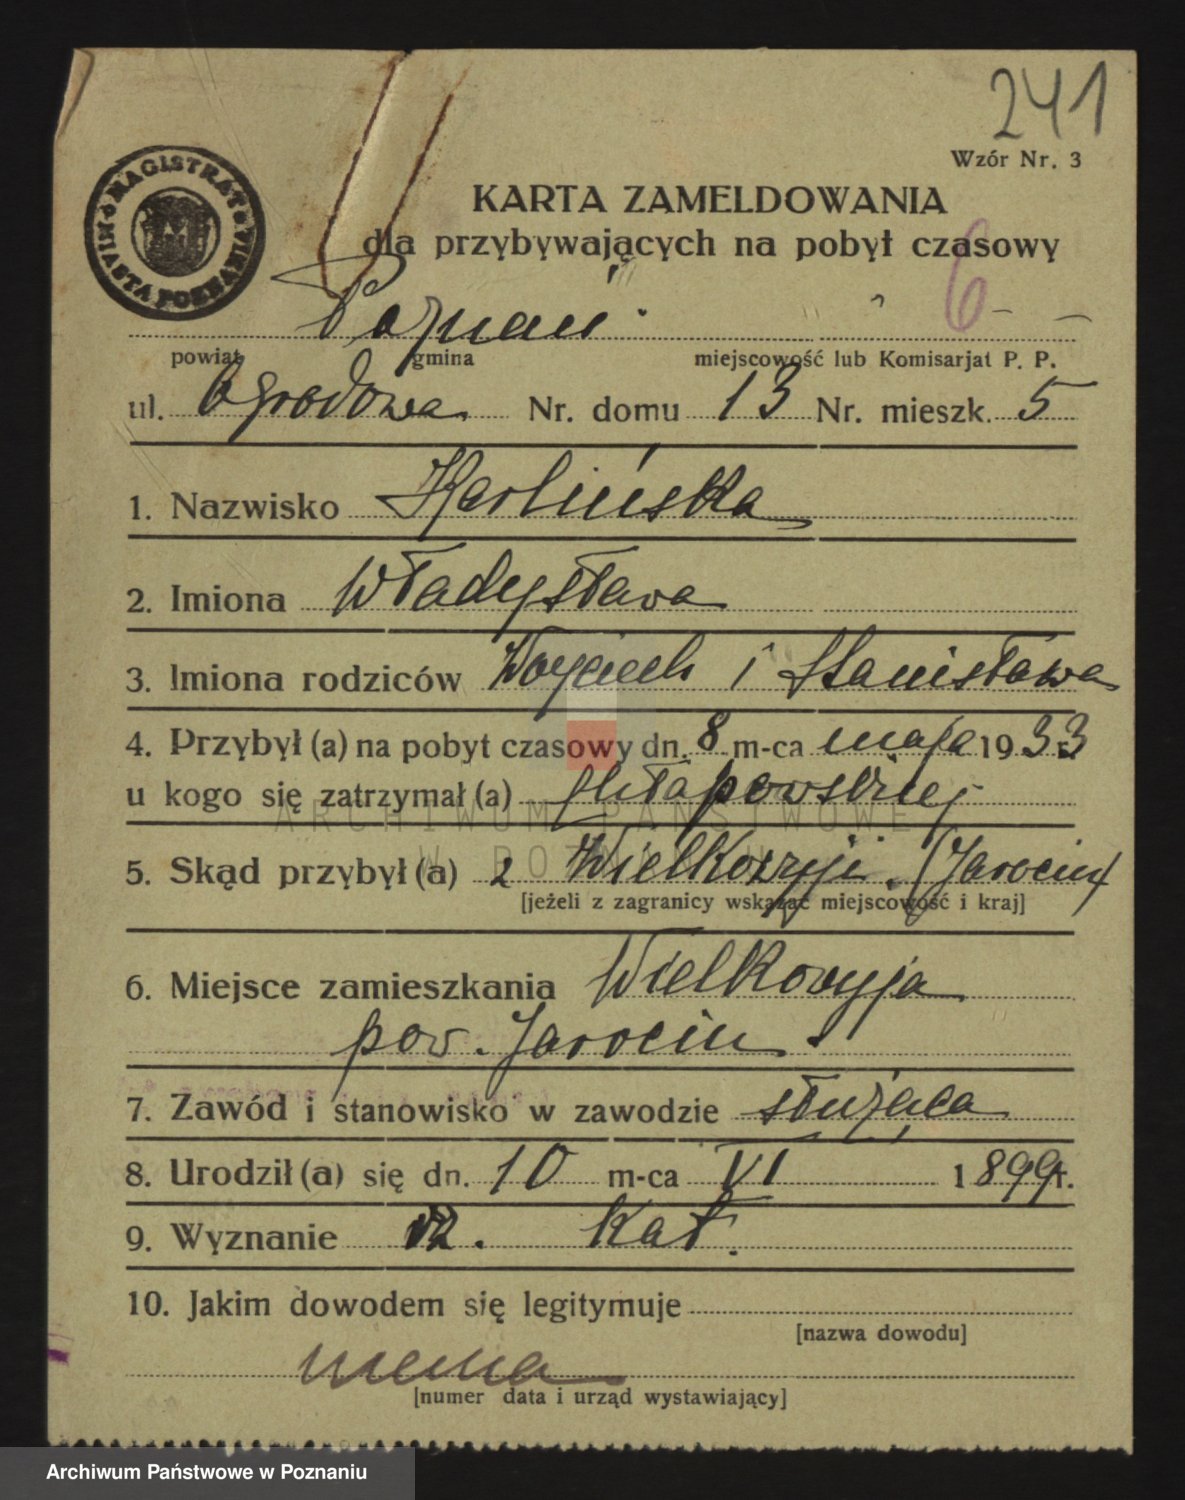 241
Wzór Nr. 3
MAGISTRAT MIASTA POZNANIA
KARTA ZAMELDOWANIA
dla przybywających na pobyt czasowy
6
Poznań
powiat gmina miejscowość lub Komisarjat P. P.
ul. Ogrodowa Nr. domu 13 Nr. mieszk. 5
1. Nazwisko Karlińska
2. Imiona Władysława
3. Imiona rodziców Wojciech i Stanisława
4. Przybył (a) na pobyt czasowy dn. 8 m-ca maja 1933
u kogo się zatrzymał (a) Chłapowskiej
ARCHIWUM PAŃSTWOWE
W POZNANIU
5. Skąd przybył (a) z Wielkowyji (Jarocin)
[jeżeli z zagranicy wskazać miejscowość i kraj]
6. Miejsce zamieszkania Wielkowyja
pow. Jarocin
7. Zawód i stanowisko w zawodzie służąca
8. Urodził (a) się dn. 10 m-ca VI 1899r.
9. Wyznanie rz. kat.
10. Jakim dowodem się legitymuje
[nazwa dowodu]
niema
[numer data i urząd wystawiający]
Archiwum Państwowe w Poznaniu